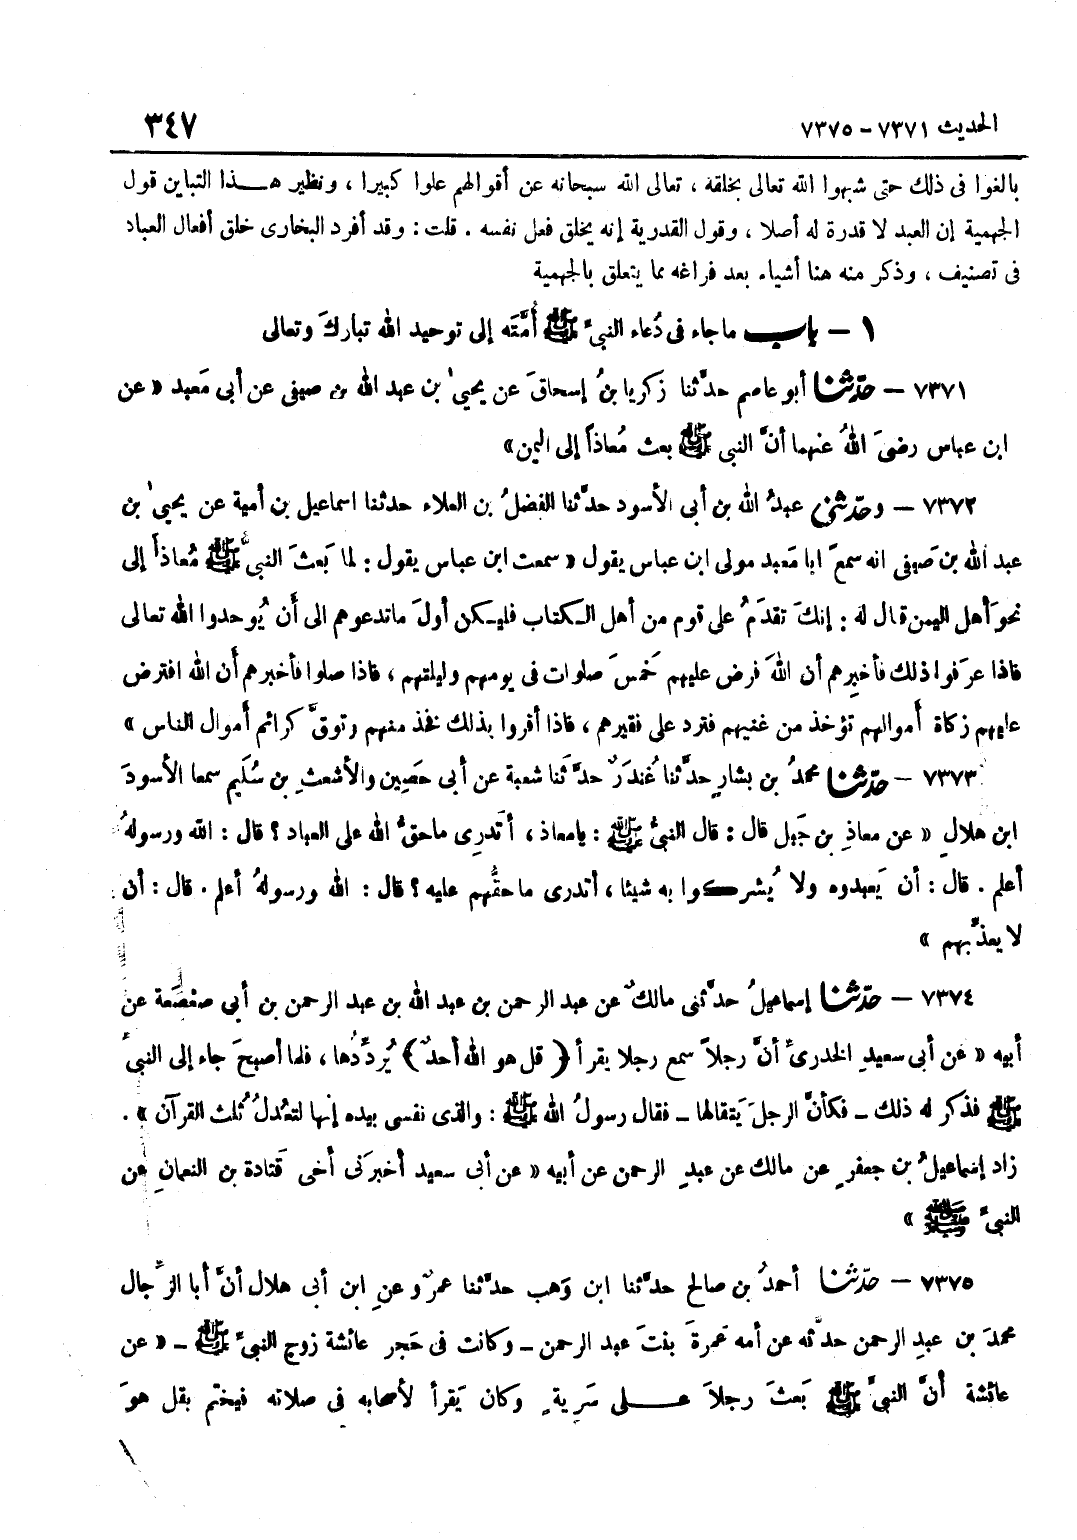 الحديث ٧٣٧١ - ٧٣٧٥ ٣٤٧
بالغوا فى ذلك حتى شبهوا الله تعالى بخلقه ، تعالى الله سبحانه عن أقوالهم علوا كبيرا ، ونظير هـذا التباين قول
الجهمية إن العبد لا قدرة له أصلا ، وقول القدرية إنه يخلق فعل نفسه . قلت : وقد أفرد البخارى خلق أفعال العباد
فى تصنيف ، وذكر منه هنا أشياء بعد فراغه مما يتعلق بالجهمية
١ - باب ماجاء فى دُعاء النبىِّ ﷺ أُمَّتَه إلى توحيد الله تبارَكَ وتعالى
٧٣٧١ - حدّثنا أبو عاصم حدَّثنا زكريا بنُ إسحاقَ عن يحيىٰ بن عبد الله بن صيفى عن أبى مَعبد « عن
ابن عباس رضىَ اللهُ عنهما أنَّ النبى ﷺ بعث مُعاذاً إلى اليمن»
٧٣٧٢ - وحدّثنى عبدُ الله بن أبى الأسود حدَّثنا الفضلُ بن العلاء حدثنا اسماعيل بن أمية عن يحيىٰ بن
عبد الله بن صَيفى انه سمعَ ابا مَعبد مولى ابن عباس يقول « سمعت ابن عباس يقول : لما بَعثَ النبىُّ ﷺ مُعاذاً إلى
نحوَ أهل اليمن قال له : إنكَ تقدَمُ على قوم من أهل الـكتاب فليـكن أولَ ماتدعوهم الى أن يُوحدوا الله تعالى
فاذا عرَفوا ذلك فأخبِرهم أن اللهَ فرض عليهم خمسَ صلوات فى يومهم وليلتهم ، فاذا صلوا فأخبرهم أن الله افترض
عليهم زكاة أموالهم تؤخذ من غنيهم فترد على فقيرهم ، فاذا أقروا بذلك فخذ منهم وتوقَّ كرائم أموال الناس »
٧٣٧٣ - حدّثنا محمدُ بن بشارٍ حدَّثنا غُندَرٌ حدَّثنا شعبة عن أبى حَصِين والأشعثِ بن سُلَيم سمعا الأسودَ
ابن هلالٍ « عن معاذِ بن جَبل قال : قال النبىُّ ﷺ : يامعاذ ، أتَدرِى ماحقُّ الله على العباد ؟ قال : الله ورسولهُ
أعلم . قال : أن يَعبدوه ولا يُشركوا به شيئا ، أتدرى ماحقُّهم عليه ؟ قال : الله ورسولهُ أعلم . قال : أن
لا يعذِّبهم »
٧٣٧٤ - حدّثنا إسماعيلُ حدَّثنى مالكٌ عن عبد الرحمن بن عبد الله بن عبد الرحمن بن أبى صَعْصَعة عن
أبيه « عن أبى سعيدٍ الخدرىِّ أنَّ رجلاً سمع رجلا يقرأ ﴿ قل هو اللهُ أحدٌ ﴾ يُردِّدُها ، فلما أصبحَ جاء إلى النبىِّ
ﷺ فذكر له ذلك - فكأنَّ الرجلَ يَتقالها - فقال رسولُ الله ﷺ : والذى نفسى بيده إنها لتعْدلُ ثُلث القرآن » .
زاد إسماعيلُ بن جعفرٍ عن مالك عن عبدِ الرحمن عن أبيه « عن أبى سعيد أخبرَنى أخى قَتادة بن النعمانِ عن
النبىِّ ﷺ »
٧٣٧٥ - حدّثنا أحمدُ بن صالح حدَّثنا ابن وَهب حدَّثنا عمرٌو عن ابن أبى هلال أنَّ أبا الرِّجال
محمدَ بن عبدِ الرحمن حدَّثه عن أمه عَمرةَ بنتَ عبد الرحمن - وكانت فى حَجر عائشة زوج النبىِّ ﷺ - « عن
عائشة أنَّ النبىَّ ﷺ بَعثَ رجلاَ عـلى سَرِية وكان يَقرأ لأصحابه فى صلاته فيختم بقل هوَ